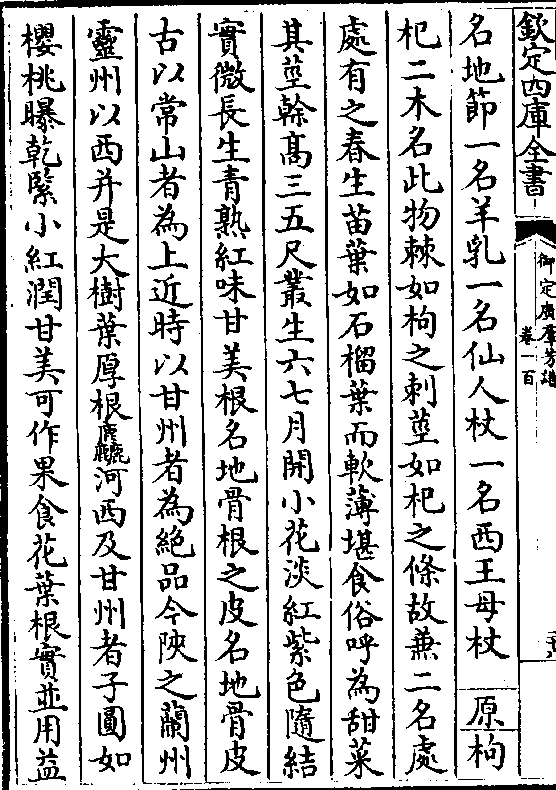 欽定四庫全書
御定廣羣芳譜
卷一百
名地節一名羊乳一名仙人杖一名西王母杖 原枸
杞二木名此物棘如枸之刺莖如杞之條故兼二名處
處有之春生苗葉如石榴葉而軟薄堪食俗呼為甜菜
其莖榦高三五尺叢生六七月開小花淡紅紫色隨結
實微長生青熟紅味甘美根名地骨根之皮名地骨皮
古以常山者為上近時以甘州者為絶品今陜之蘭州
靈州以西并是大樹葉厚根麤河西及甘州者子圓如
櫻桃曝乾緊小紅潤甘美可作果食花葉根實並用益